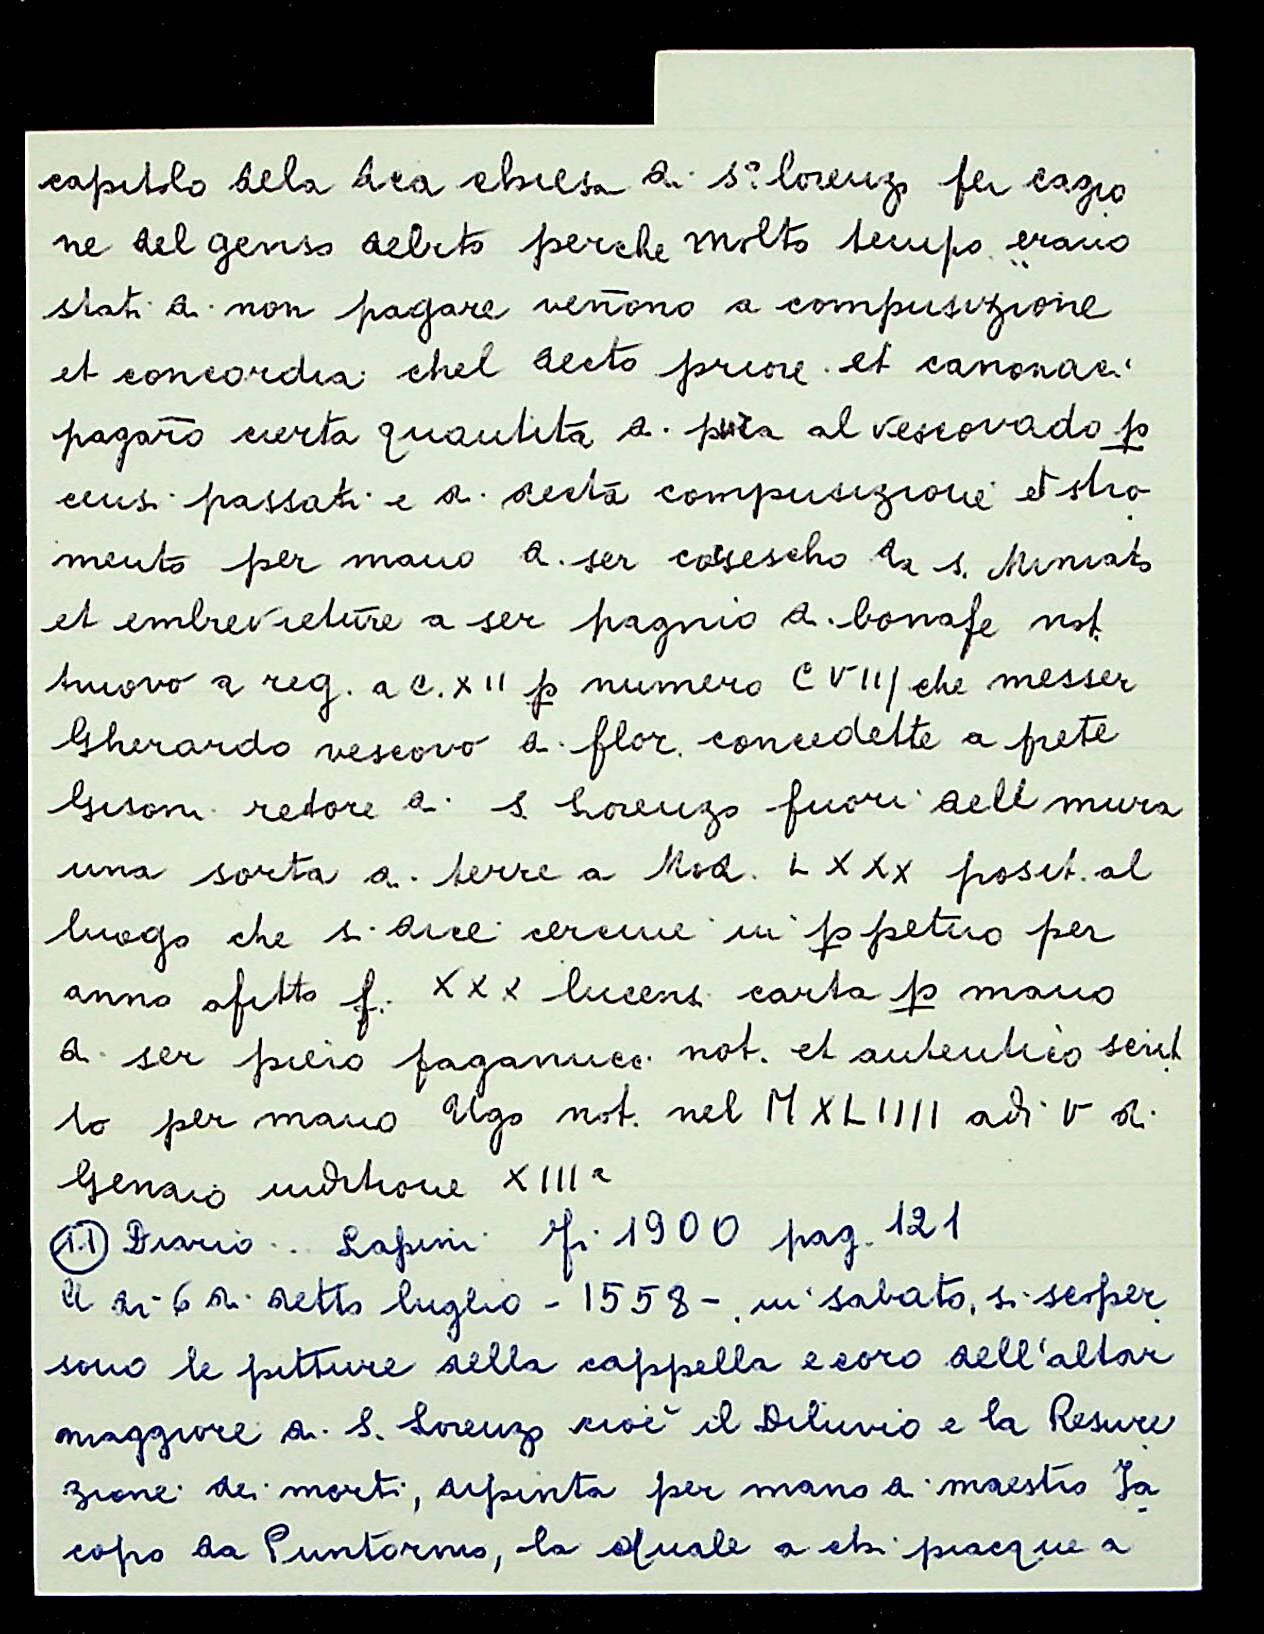 capitolo dela dca chiesa di s.º lorenzo per cagio
ne del censo debito perche molto tempo erano
stati di non pagare veñono a compusizione
et concordia chel decto priore et canonaci
pagarõ certa quantita di al vescovado p
censi passati e di decta compusizione et stro
mento per mano di ser da s. Miniato
et embrevieture a ser pagnio di bonafe not.
truovo a reg. a c. XII p numero CVIII che messer
Gherardo vescovo di flor. concedette a prete
Gisoni retore di S. Lorenzo fuori dell mura
una sorta di terre a Mod. LXXX posit. al
luogo che si dice cercine in p petuo per
anno afitto f. XXX lucens. carta p mano
di ser piero paganucci not. et autentico scrit
to per mano Ugo not. nel MXLIIII adi V di
Genaio inditione XIIIa
(11) Diario .. Lapini Fi. 1900 pag. 121
A di 6 di detto luglio - 1558 -, in sabato, si scoper
sono le pitture della cappella e coro dell'altar
maggiore di S. Lorenzo cioè il Diluvio e la Resure
zione dei morti, dipinta per mano di maestro Ja
copo da Puntormo, la quale a chi piacque a